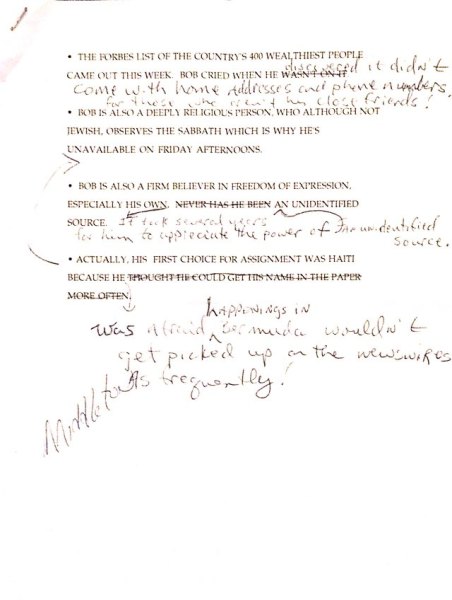 • THE FORBES LIST OF THE COUNTRY'S 400 WEALTHIEST PEOPLE
discovered it didn't
CAME OUT THIS WEEK. BOB CRIED WHEN HE WASN'T ON IT
come with home addresses and phone numbers.
for those who aren't his close friends!
• BOB IS ALSO A DEEPLY RELIGIOUS PERSON, WHO ALTHOUGH NOT
JEWISH, OBSERVES THE SABBATH WHICH IS WHY HE'S
UNAVAILABLE ON FRIDAY AFTERNOONS.
• BOB IS ALSO A FIRM BELIEVER IN FREEDOM OF EXPRESSION,
ESPECIALLY HIS OWN. NEVER HAS HE BEEN AN UNIDENTIFIED
SOURCE. It took several years
for him to appreciate the power of an unidentified
source.
• ACTUALLY, HIS FIRST CHOICE FOR ASSIGNMENT WAS HAITI
BECAUSE HE THOUGHT HE COULD GET HIS NAME IN THE PAPER
MORE OFTEN.
happenings in
was afraid Bermuda wouldn't
get picked up on the newswires
as frequently!